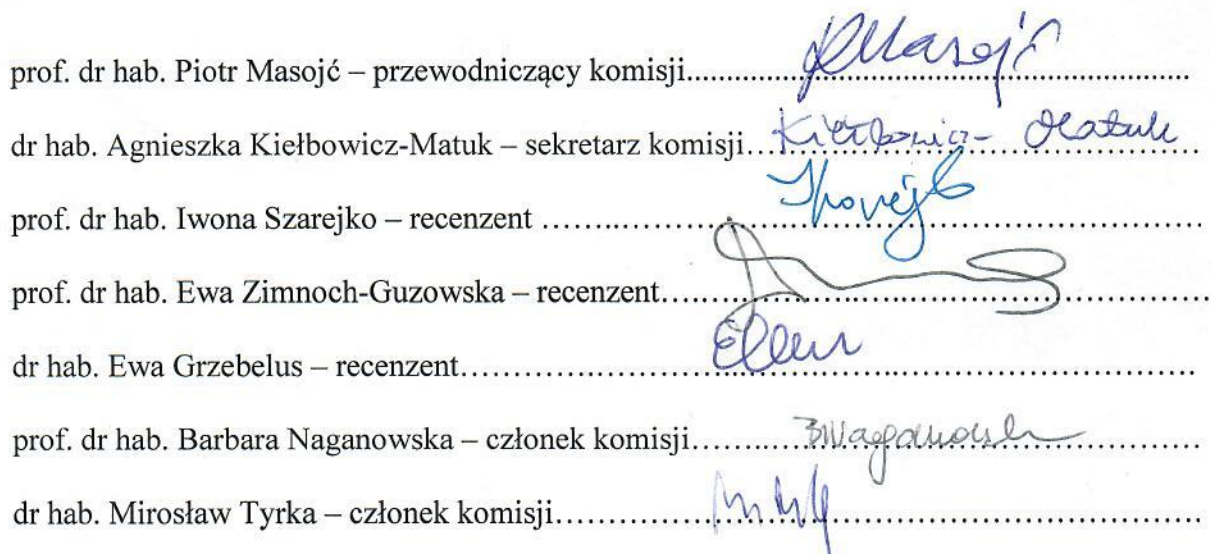 prof. dr hab. Piotr Masojć – przewodniczący komisji.......................................................... PMasojć
dr hab. Agnieszka Kiełbowicz-Matuk – sekretarz komisji................................................ Kiełbowicz- Matuk
prof. dr hab. Iwona Szarejko – recenzent ......................................................................
prof. dr hab. Ewa Zimnoch-Guzowska – recenzent..........................................................
dr hab. Ewa Grzebelus – recenzent................................................................................
prof. dr hab. Barbara Naganowska – członek komisji...................................................... BNaganowska
dr hab. Mirosław Tyrka – członek komisji.....................................................................